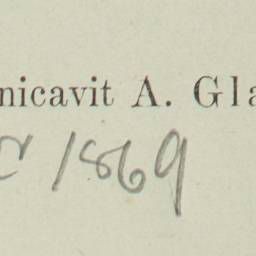 nicavit A. Gla
1869